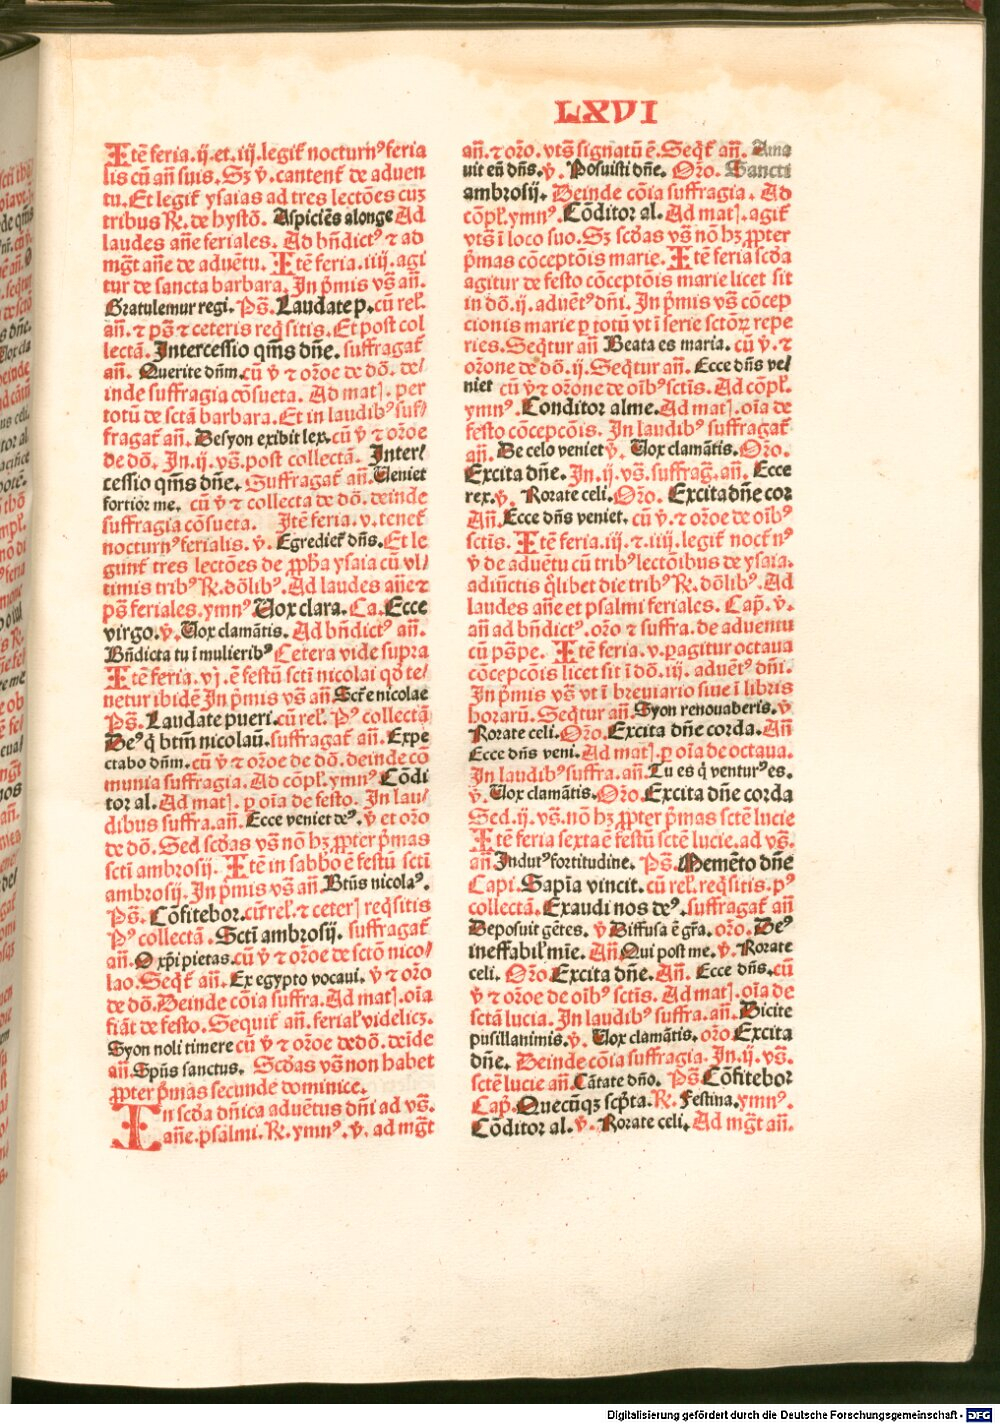 LXVI
Itē feria.ij.et.iij.legit᷑ nocturnꝰ feria
lis cū an̄ suis. Sꝫ ꝟ. cantent᷑ de aduen
tu. Et legit᷑ ysaias ad tres lectōes cuꝫ
tribus R̷. de hystō. Aspiciēs alonge Ad
laudes an̄e feriales. Ad bn̄dictꝰ ⁊ ad
mḡt an̄e de aduētu. Itē feria.iiij.agi
tur de sancta barbara. In p̄mis vs̄ an̄.
Gratulemur regi. Ps̄. Laudate p. cū rel᷑.
an̄. ⁊ ps̄ ⁊ ceteris req̄sitis. Et post col
lectā. Intercessio qm̄s dn̄e. suffragat᷑
an̄. Querite dn̄m. cū ꝟ ⁊ oꝛoe de dō. de/
inde suffragia cōsueta. Ad matꝭ. per
totū de sctā barbara. Et in laudibꝰ suf/
fragat᷑ an̄. Desyon exibit lex. cū ꝟ ⁊ oꝛoe
de dō. In.ij.vs̄. post collectā. Inter/
cessio qm̄s dn̄e. Suffragat᷑ an̄. Ueniet
fortior me. cū ꝟ ⁊ collecta de dō. deinde
suffragia cōsueta. Itē feria.v.tenet᷑
nocturnꝰ ferialis. ꝟ. Egrediet᷑ dn̄s. Et le
gunt᷑ tres lectōes de ꝓpha ysaia cū vl/
timis tribꝰ R̷. dōlibꝰ. Ad laudes an̄e ⁊
ps̄ feriales. ymnꝰ Uox clara. Ca. Ecce
virgo. ꝟ. Uox clamātis. Ad bn̄dictꝰ an̄.
Bn̄dicta tu ī mulieribꝰ Cetera vide supra
Itē feria.vj.ē festū sctī nicolai qd̄ te/
netur ibidē In p̄mis vs̄ an̄ Sct̄e nicolae
Ps̄. Laudate pueri. cū rel᷑. Pꝰ collectā
Deꝰ q̄ btm̄ nicolaū. suffragat᷑ an̄. Expe
ctabo dn̄m. cū ꝟ ⁊ oꝛoe de dō. deinde cō
munia suffragia. Ad cōpl᷑. ymnꝰ. Cōdi
tor al. Ad matꝭ. ꝑ oīa de festo. In lau/
dibus suffra. an̄. Ecce veniet deꝰ. ꝟ et oꝛo
de dō. Sed scd̄as vs̄ nō hꝫ ꝓpter p̄mas
sctī ambrosij. Itē in sabbo ē festū sctī
ambrosij. In p̄mis vs̄ an̄. Btūs nicolaꝰ.
Ps̄. Cōfitebor. cū rel᷑. ⁊ ceterꝭ req̄sitis
Pꝰ collectā. Sctī ambrosij. suffragat᷑
an̄. O xp̄i pietas. cū ꝟ ⁊ oꝛoe de sctō nico/
lao. Seq̄t᷑ an̄. Ex egypto vocaui. ꝟ ⁊ oꝛo
de dō. Deinde cōia suffra. Ad matꝭ. oīa
fiāt de festo. Sequit᷑ an̄. ferial᷑ videlicꝫ.
Syon noli timere cū ꝟ ⁊ oꝛoe de dō. deīde
an̄. Spūs sanctus. Scd̄as vs̄ non habet
ꝓpter p̄mas secunde dominice.
In scd̄a dn̄ica aduētus dn̄i ad vs̄.
an̄e. psalmi. R̷. ymnꝰ. ꝟ. ad mḡt
an̄. ⁊ oꝛo. vts̄ signatū ē. Seq̄t᷑ an̄. Ama
uit eū dn̄s. ꝟ. Posuisti dn̄e. Oꝛo. Sancti
ambrosij. Deinde cōia suffragia. Ad
cōpl᷑. ymnꝰ. Cōditor al. Ad matꝭ. agit᷑
vts̄ ī loco suo. Sꝫ scd̄as vs̄ nō hꝫ ꝓpter
p̄mas cōceptōis marie. Itē feria scd̄a
agitur de festo cōceptōis marie licet sit
in dō.ij.aduēt᷑ dn̄i. In p̄mis vs̄ cōcep
cionis marie ꝑ totū vt ī serie sctōꝝ repe
ries. Seq̄tur an̄ Beata es maria. cū ꝟ. ⁊
oꝛōne de dō.ij. Seq̄tur an̄. Ecce dn̄s ve/
niet cū ꝟ ⁊ oꝛōne de oībꝰ sctīs. Ad cōpl᷑.
ymnꝰ. Conditor alme. Ad matꝭ. oīa de
festo cōcepcōis. In laudibꝰ suffragat᷑
an̄. De celo veniet ꝟ. Uox clamātis. Oꝛo.
Excita dn̄e. In.ij.vs̄. suffrag᷑. an̄. Ecce
rex. ꝟ. Rorate celi. Oꝛo. Excita dn̄e cor
An̄. Ecce dn̄s veniet. cū ꝟ. ⁊ oꝛoe de oībꝰ
sctīs. Itē feria.iij.⁊.iiij.legit᷑ noct᷑nꝰ
ꝟ de aduētu cū tribꝰ lectoībus de ysaia.
adiūctis q̄libet die tribꝰ R̷. dōlibꝰ. Ad
laudes an̄e et psalmi feriales. Cap̄. ꝟ.
an̄ ad bn̄dictꝰ. oꝛo ⁊ suffra. de aduentu
cū ps̄pe. Itē feria.v.pagitur octaua
cōcepcōis licet sit ī dō.iij. aduēt᷑ dn̄i.
In p̄mis vs̄ vt ī breuiario siue ī libris
horarū. Seq̄tur an̄. Syon renouaberis. ꝟ
Rorate celi. Oꝛo. Excita dn̄e corda. An̄
Ecce dn̄s veni. Ad matꝭ. ꝑ oīa de octaua.
In laudibꝰ suffra. an̄. Tu es q̄ venturꝰ es.
ꝟ. Uox clamātis. Oꝛo. Excita dn̄e corda
Sed.ij.vs̄. nō hꝫ ꝓpter p̄mas sctē lucie
Itē feria sexta ē festū sctē lucie. ad vs̄.
an̄ Indutꝰ fortitudine. Ps̄. Memēto dn̄e
Capi. Sapīa vincit. cū rel᷑. req̄sitis. pꝰ
collectā. Exaudi nos deꝰ. suffragat᷑ an̄
Deposuit gētes. ꝟ Diffusa ē gr̄a. oꝛo. Deꝰ
ineffabil᷑ mīe. An̄ Qui post me. ꝟ. Rorate
celi. Oꝛo Excita dn̄e. An̄. Ecce dn̄s. cū
ꝟ ⁊ oꝛoe de oībꝰ sctīs. Ad matꝭ. oīa de
sctā lucia. In laudibꝰ suffra. an̄. Dicite
pusillanimis. ꝟ. Uox clamātis. oꝛo Excita
dn̄e. Deinde cōia suffragia. In.ij.vs̄.
sctē lucie an̄. Cātate dn̄o. Ps̄. Cōfitebor
Cap̄. Quecūqꝫ scp̄ta. R̷. Festina. ymnꝰ.
Cōditor al. ꝟ. Rorate celi. Ad mḡt an̄.
Digitalisierung gefördert durch die Deutsche Forschungsgemeinschaft - DFG